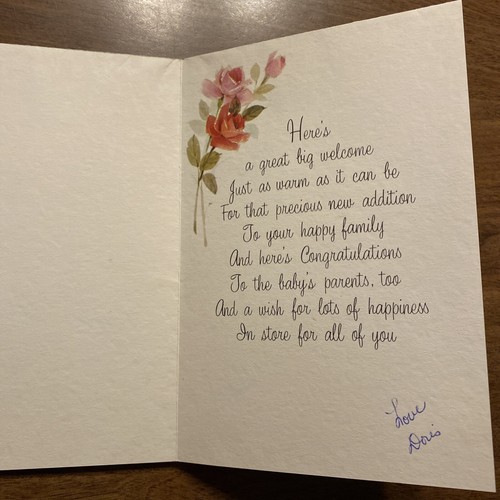 Here's
a great big welcome
Just as warm as it can be
For that precious new addition
To your happy family
And here's Congratulations
To the baby's parents, too
And a wish for lots of happiness
In store for all of you
Love
Doris